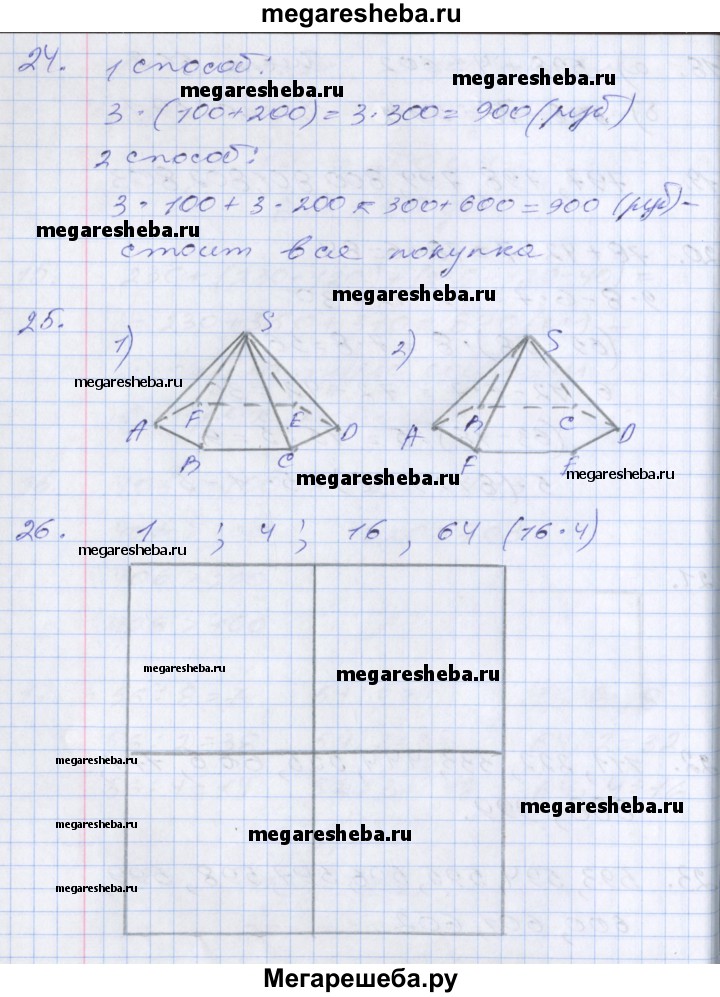 megaresheba.ru
24. 1 способ:
megaresheba.ru
megaresheba.ru
3 · (100+200) = 3 · 300 = 900 (руб)
2 способ:
3 · 100 + 3 · 200 = 300 + 600 = 900 (руб) -
megaresheba.ru
стоит вся покупка
megaresheba.ru
25. 1) S 2) S
megaresheba.ru
A F E D A B C D
B C F E
megaresheba.ru
megaresheba.ru
26. 1 ; 4 ; 16 , 64 (16·4)
megaresheba.ru
megaresheba.ru
megaresheba.ru
megaresheba.ru
megaresheba.ru
megaresheba.ru
megaresheba.ru
megaresheba.ru
Мегарешеба.ру